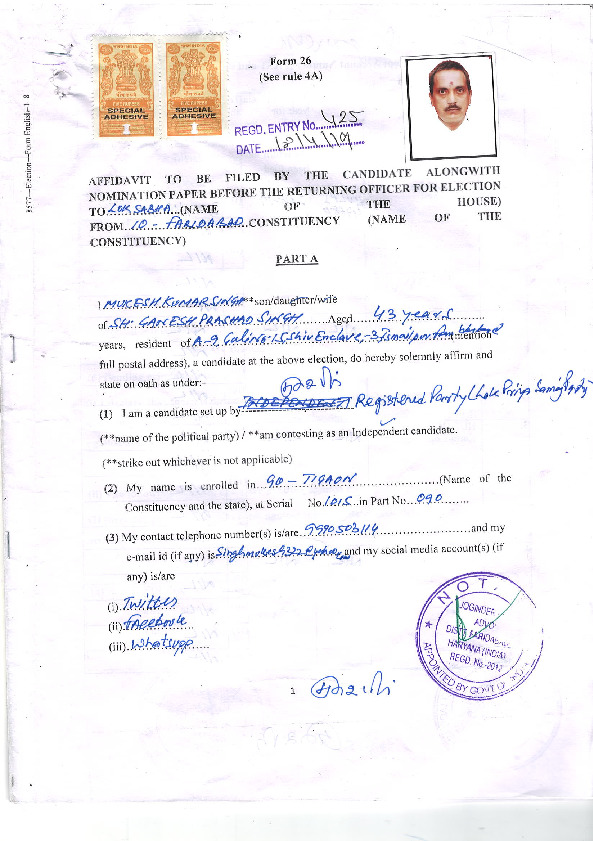 Form 26
(See rule 4A)
SPECIAL ADHESIVE
SPECIAL ADHESIVE
REGD. ENTRY No. 425
DATE 18/4/19
AFFIDAVIT TO BE FILED BY THE CANDIDATE ALONGWITH
NOMINATION PAPER BEFORE THE RETURNING OFFICER FOR ELECTION
TO LOK SABHA (NAME OF THE HOUSE)
FROM 10 - FARIDABAD CONSTITUENCY (NAME OF THE
CONSTITUENCY)
PART A
I MUKESH KUMAR SINGH **son/daughter/wife
of SH. GANESH PRASHAD SINGH Aged 43 years
years, resident of A-9 Gali no-15 Shiv Enclave-3 Ismailpur (mention
full postal address), a candidate at the above election, do hereby solemnly affirm and
state on oath as under:-
(1) I am a candidate set up by INDEPENDENT Registered Parity
(**name of the political party) / **am contesting as an Independent candidate.
(**strike out whichever is not applicable)
(2) My name is enrolled in 90 - TIGAON (Name of the
Constituency and the state), at Serial No. 1015 in Part No 090
(3) My contact telephone number(s) is/are and my
e-mail id (if any) is and my social media account(s) (if
any) is/are
(i) Twitter
(ii) Facebook
(iii) Whatsapp
1
NOT.
JOGINDER
ADVO
DISTT. FARIDABAD
HARYANA (INDIA)
REGD. No.-2017
APPOINTED BY GOVT